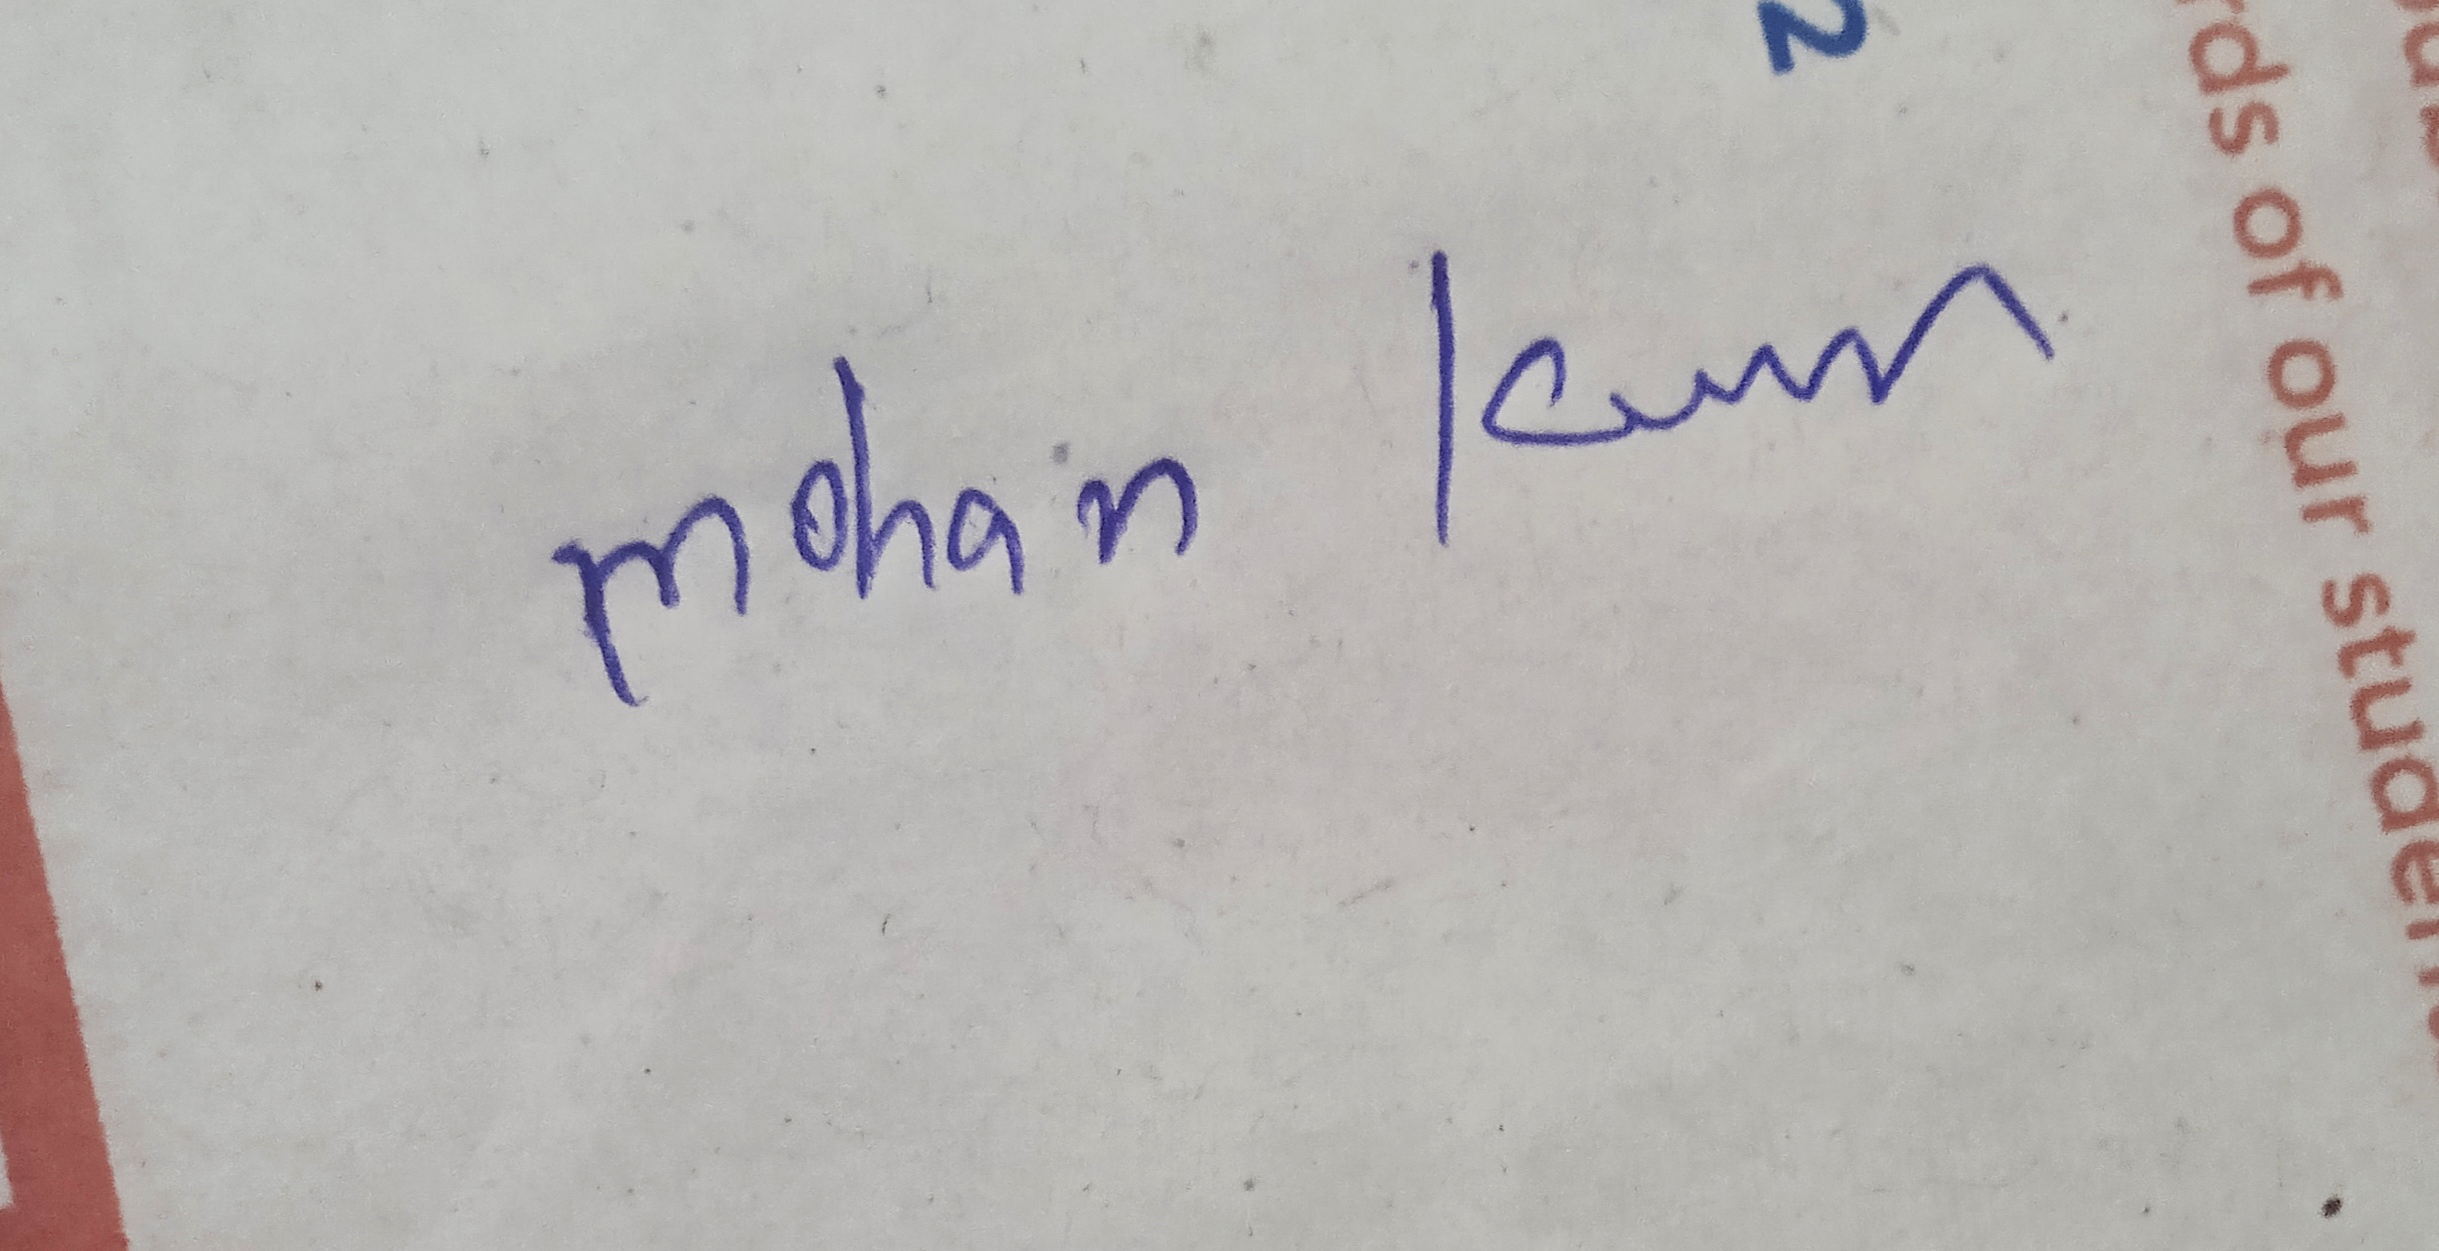 mohan kum
rds of our studen